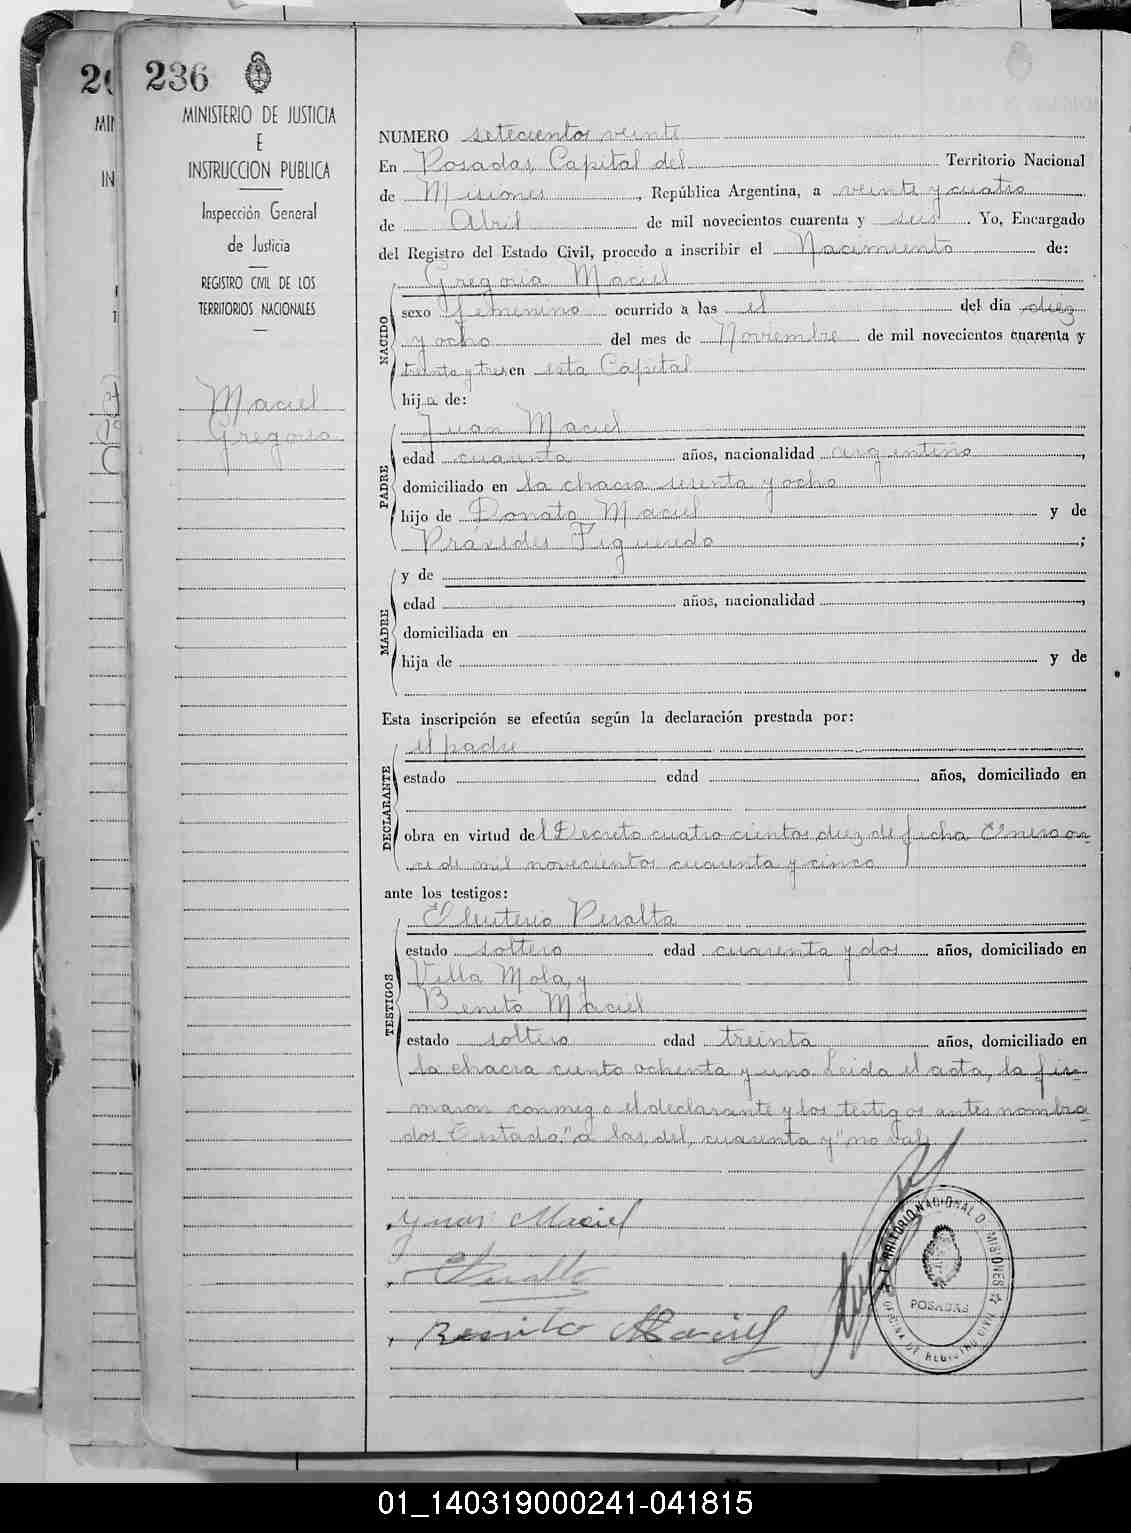 236
MINISTERIO DE JUSTICIA
E
INSTRUCCION PUBLICA
Inspección General
de Justicia
REGISTRO CIVIL DE LOS
TERRITORIOS NACIONALES
Maciel
Gregoria
NUMERO setecientos veinte
En Posadas, Capital del Territorio Nacional
de Misiones, República Argentina, a veinte y cuatro
de Abril de mil novecientos cuarenta y seis. Yo, Encargado
del Registro del Estado Civil, procedo a inscribir el Nacimiento de:
Gregoria Maciel
NACIDO
sexo femenino ocurrido a las el del día diez
y ocho del mes de Noviembre de mil novecientos cuarenta y
treinta y tres en esta Capital
hija de:
PADRE
Juan Maciel
edad cuarenta años, nacionalidad argentino,
domiciliado en la chacra sesenta y ocho
hijo de Donato Maciel y de
Práxedes Figueredo;
MADRE
y de
edad años, nacionalidad
domiciliada en
hija de y de
Esta inscripción se efectúa según la declaración prestada por:
DECLARANTE
el padre
estado edad años, domiciliado en
obra en virtud del Decreto cuatro cientos diez de fecha Enero on-
ce de mil novecientos cuarenta y cinco
ante los testigos:
TESTIGOS
Eleuterio Peralta
estado soltero edad cuarenta y dos años, domiciliado en
Villa Mola, y
Benito Maciel
estado soltero edad treinta años, domiciliado en
la chacra ciento ochenta y uno. Leida el acta, la fir-
maron conmigo el declarante y los testigos antes nombra-
dos Testado "a las, del, cuarenta y" no vale
Juan Maciel
EPeralta
Benito Maciel
TERRITORIO NACIONAL D. MISIONES
POSADAS
OFICINA DE REGISTRO CIVIL
01_140319000241-041815